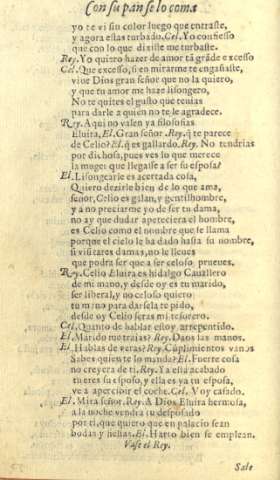 Con su pan se lo coma
yo te vi sin color luego que entraste,
y agora estas turbado. Cel. Yo confiesso
que con lo que dixiste me turbaste.
Rey. Yo quiero hazer de amor tã grãde excesso
Cel. Que excesso, si en mirarme te engañaste,
viue Dios gran señor que no la quiero,
y que tu amor me haze lisongero,
No te quites el gusto que tenias
para darle a quien no te le agradece.
Rey. Aqui no valen ya filosofias
Eluira, El. Gran señor. Rey. q̃ te parece
de Celio? El. q̃ es gallardo. Rey. No tendrias
por dichosa, pues ves lo que merece
la muger que llegasse a ser su esposa?
El. Lisongearle es acertada cosa,
Quiero dezirle bien de lo que ama,
señor, Celio es galan, y gentilhombre,
y a no preciarme yo de ser tu dama,
no ay que dudar apeteciera el hombre,
es Celio como el nombre que se llama
porque el cielo le ha dado hasta su nombre,
si visitares damas, no le lleues
que podra ser que a ser celoso prueues.
Rey. Celio Eluira es hidalgo Cauallero
de mi mano, y desde oy es tu marido,
ser liberal, y no celoso quiero
tu mano para darsela te pido,
desde oy Celio seras mi tesorero.
Cel. Quanto de hablar estoy arrepentido.
El. Marido me traias? Rey. Daos las manos.
El. Hablas de veras? Rey. Cumplimientos vanos
Sabes quien te lo manda? El. Fuerte cosa
no creyera de ti. Rey. Ya està acabado
tu eres su esposo, y ella es ya tu esposa,
ve a apercibir el coche. Cel. Voy casado.
El. Mira señor. Rey. A Dios Eluira hermosa,
a la noche vendra tu desposado
por ti, que quiero que en palacio sean
bodas y fiestas. El. Harto bien se emplean.
Vase el Rey.
Sale